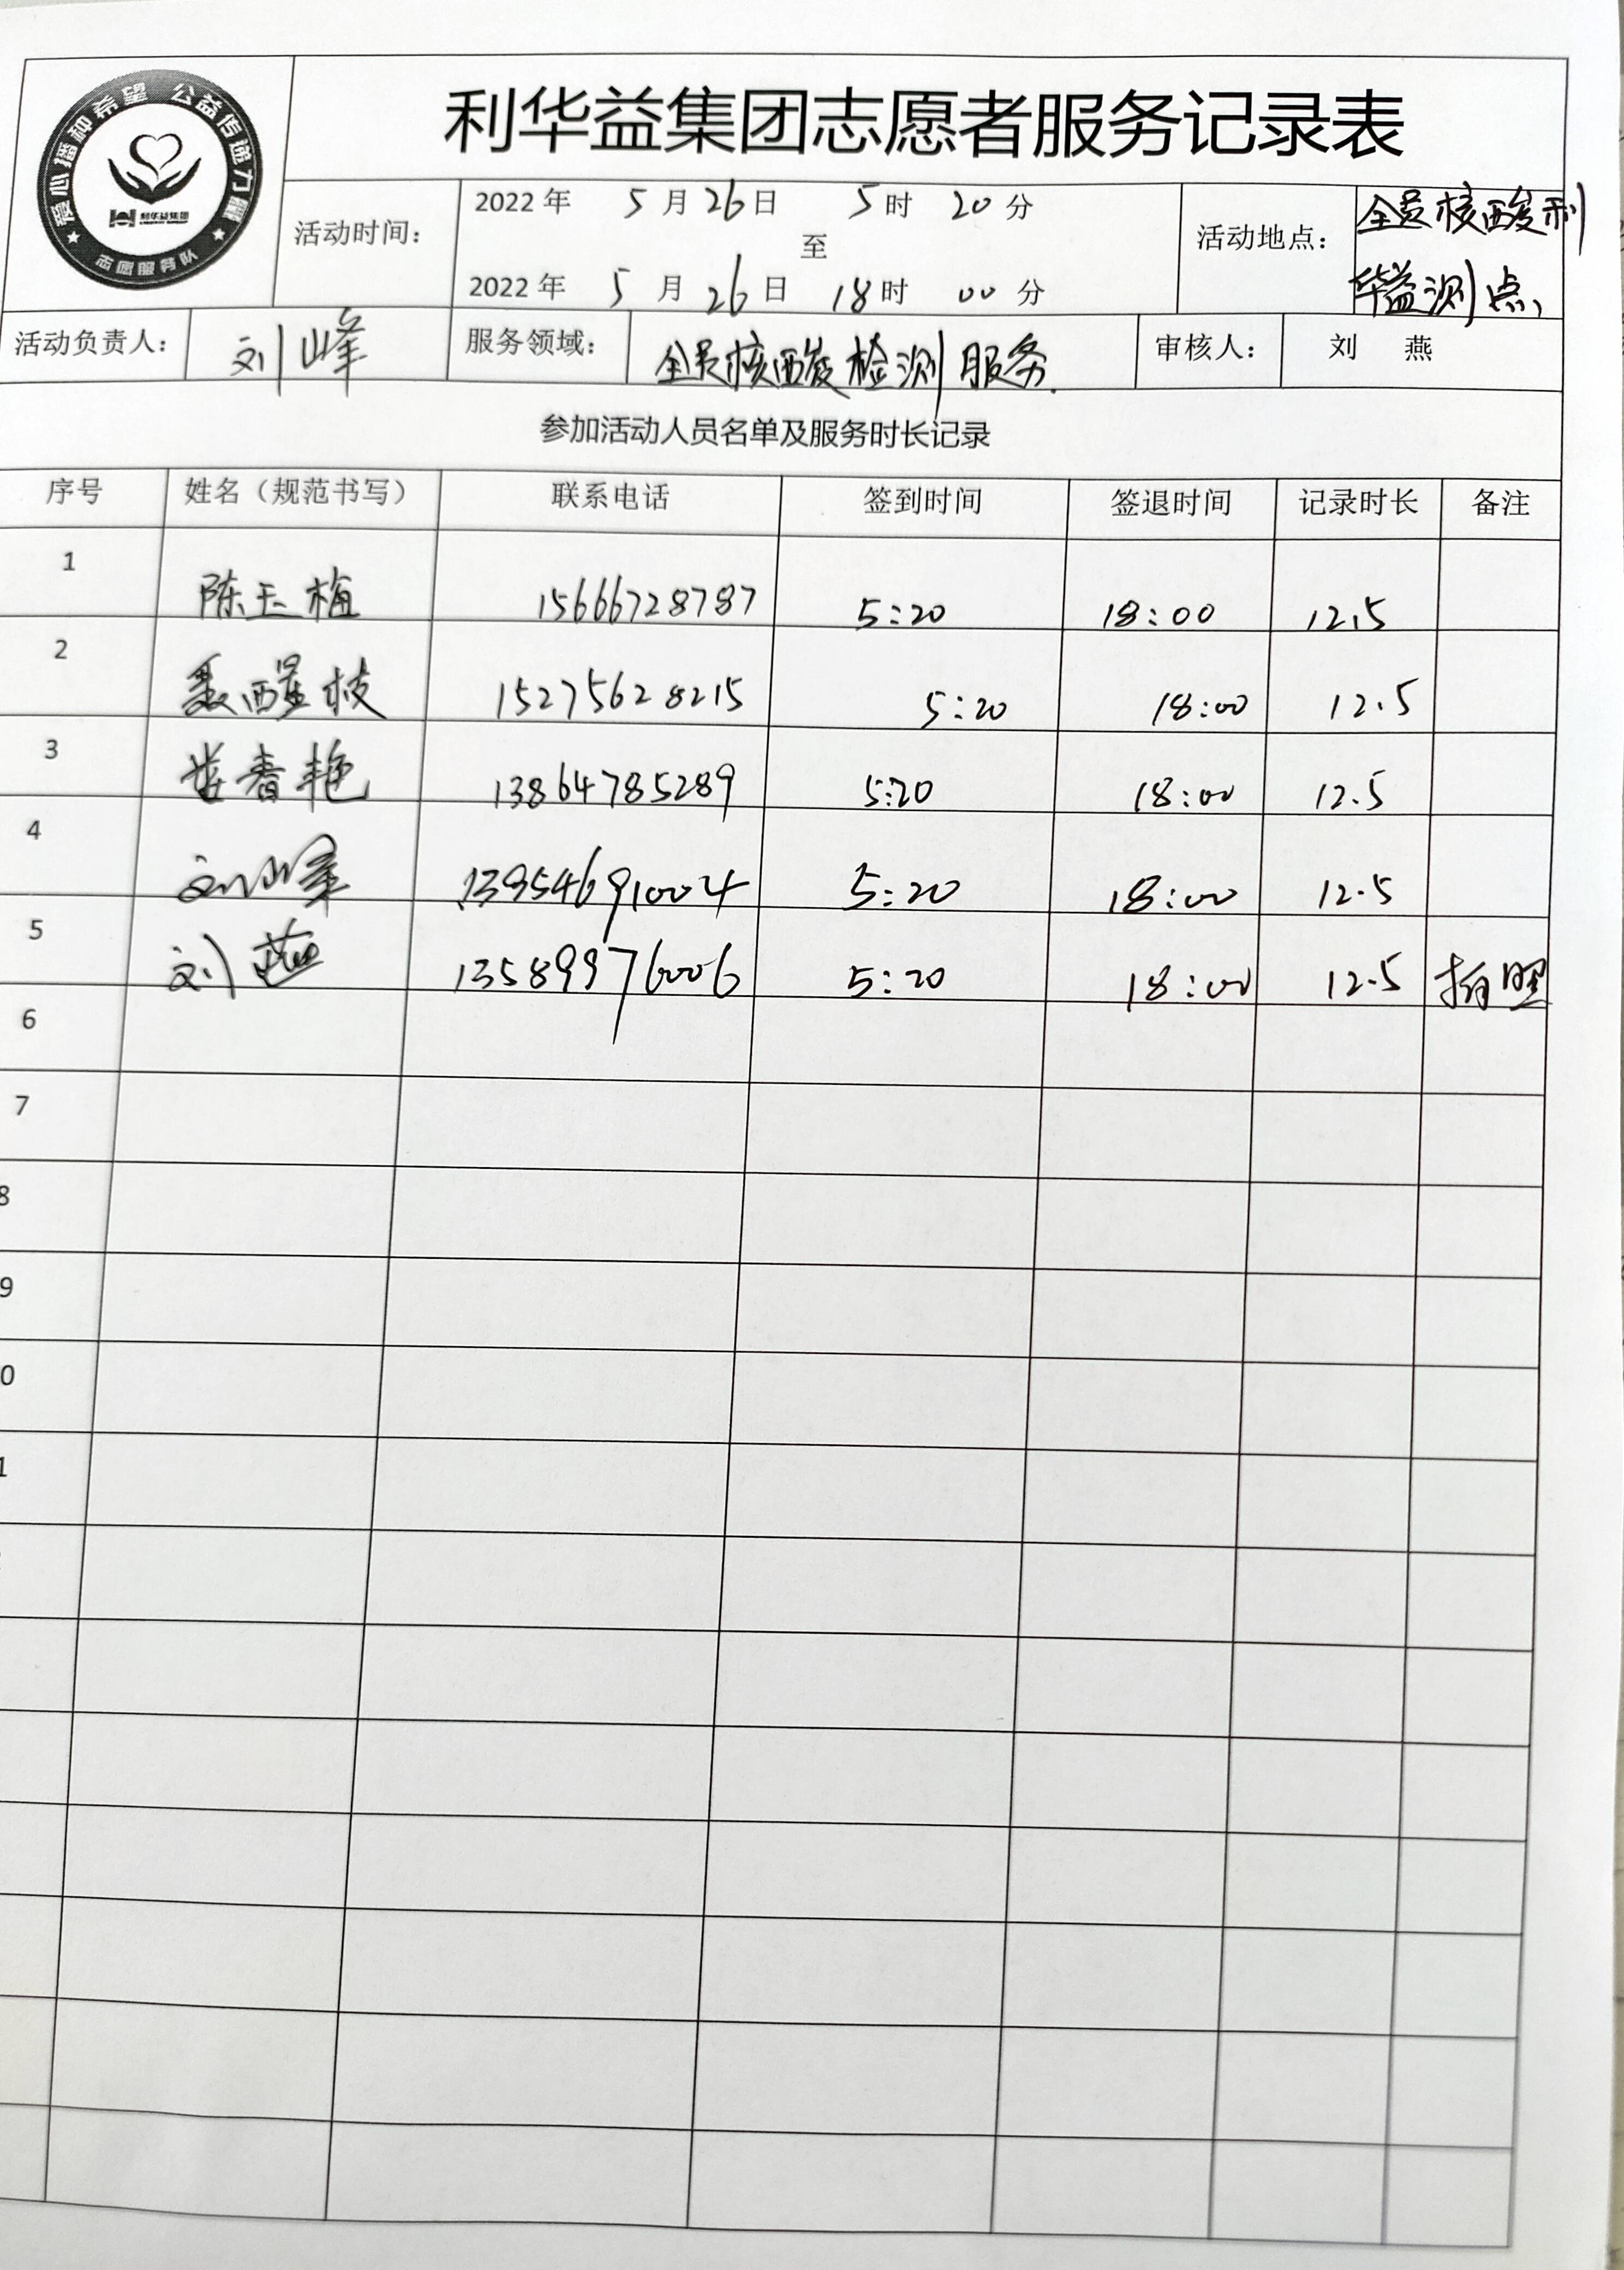 爱心播种希望 公益传递力量
利华益集团
志愿服务队
利华益集团志愿者服务记录表
活动时间：
2022年 5月26日 5时 20分
至
2022年 5月26日 18时 00分
活动地点：
全员核酸利
华益测点
活动负责人： 刘峰 服务领域： 全员核酸检测服务. 审核人： 刘 燕
参加活动人员名单及服务时长记录
序号 姓名（规范书写） 联系电话 签到时间 签退时间 记录时长 备注
1 陈玉梅 15666728787 5:20 18:00 12.5
2 聂醒枝 15275628215 5:20 18:00 12.5
3 春艳 13864785289 5:20 18:00 12.5
4 刘峰 13954691004 5:20 18:00 12.5
5 刘燕 13589976006 5:20 18:00 12.5 拍照
6
7
8
9
0
1